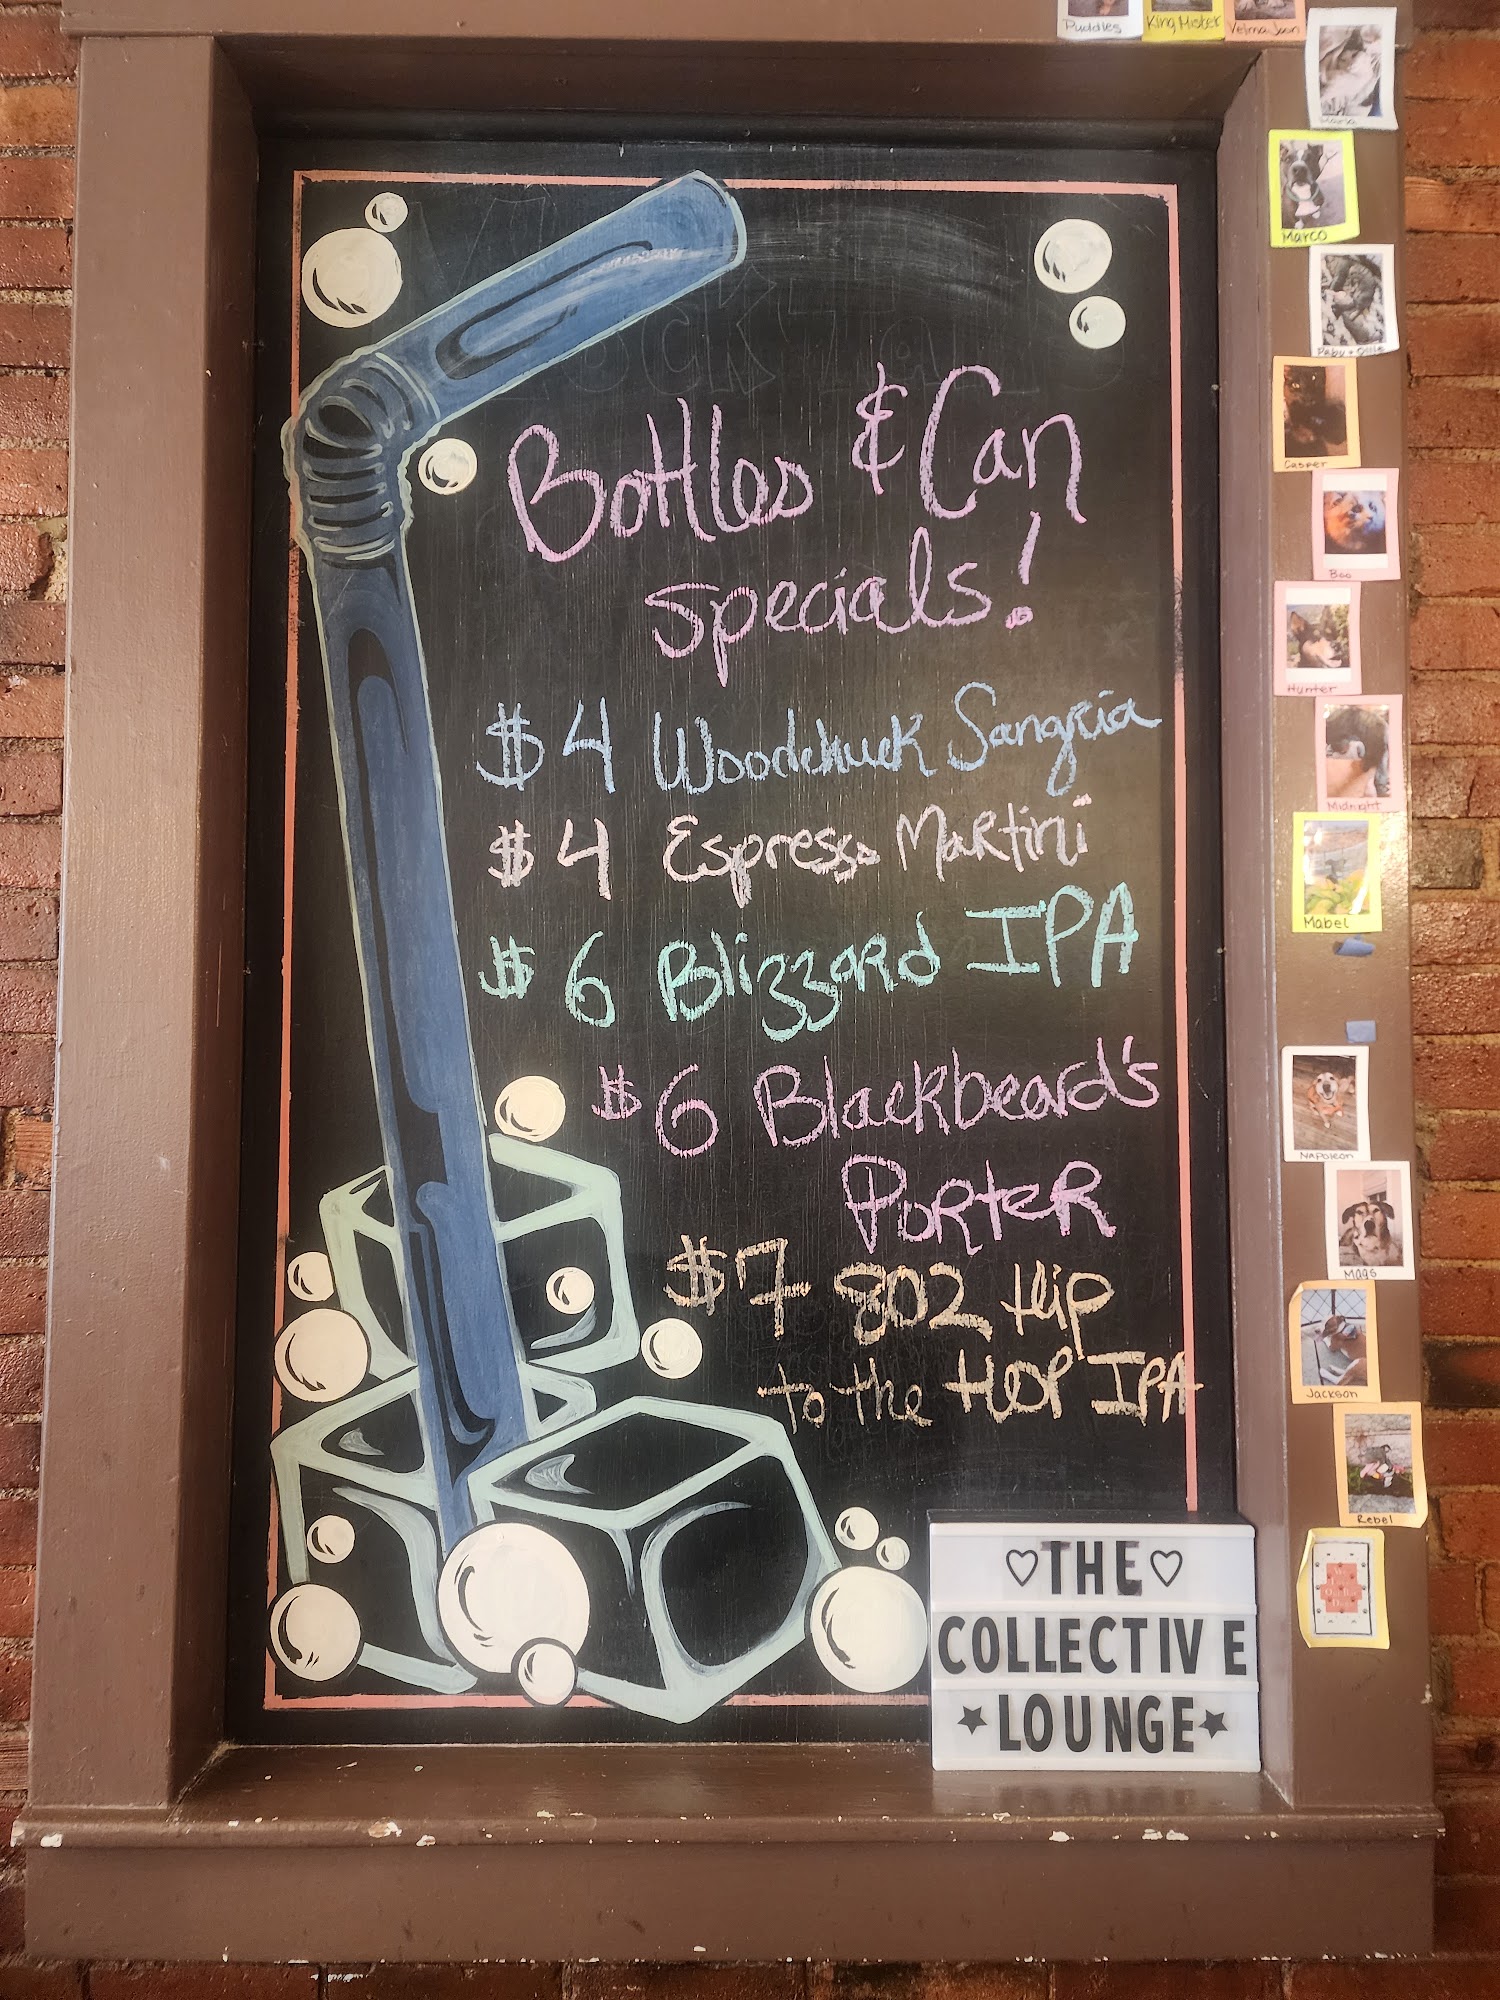 Puddles
King Mister
Velma Jean
Marla
Marco
Casper
Boo
Hunter
Midnight
Mabel
Napoleon
Mags
Jackson
Rebel
Bottles & Can
specials!
$4 Woodchuck Sangria
$4 Espresso Martini
$6 Blizzard IPA
$6 Blackbeard's
Porter
$7 802 Hip
to the HOP IPA
♡THE♡
COLLECTIVE
★LOUNGE★